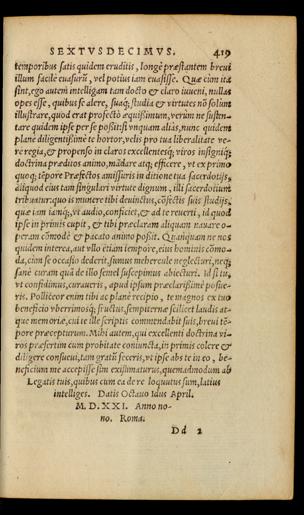 SEXTVSDECIMVS. 419
temporibus satis quidem eruditis, longè præstantem breui
illum facilè euasurũ, vel potius iam euasisse. Quæ cùm ita
sint, ego autem intelligam tam docto & claro iuueni, nullas
opes esse, quibus se alere, suaq; studia & virtutes nõ solùm
illustrare, quod erat profectò æquissimum, verùm ne susten-
tare quidem ipse per se possit: si vnquam aliàs, nunc quidem
planè diligentissimè te hortor, velis pro tua liberalitate ve-
rè regia, & propenso in claros excellentesq; viros insigniq;
doctrina præditos animo, mãdare atq; efficere, vt ex primo
quoq; tẽpore Præfectos amissuris in ditione tua sacerdotijs,
aliquod eius tam singulari virtute dignum, illi sacerdotium
tribuatur: quo is munere tibi deuinctus, cõfectis suis studijs,
quæ iam iamq; vt audio, conficiet, & ad te reuerti, id quod
ipse in primis cupit, & tibi præclaram aliquam nauare o-
peram cõmodè & pacato animo possit. Quanquam ne nos
quidem interea, aut vllo etiam tempore, eius hominis cõmo-
da, cùm se occasio dederit, sumus mehercule neglecturi, neq;
sanè curam quã de illo semel suscepimus abiecturi. Id si tu,
vt confidimus, curaueris, apud ipsum præclarissimè posue-
ris. Polliceor enim tibi ac planè recipio, te magnos ex tuo
beneficio vberrimosq; fructus, sempiternæ scilicet laudis at-
que memoriæ, cui te ille scriptis commendabit suis, breui tẽ-
pore præcepturum. Mihi autem, qui excellenti doctrina vi-
ros præsertim cum probitate coniuncta, in primis colere &
diligere consueui, tam gratũ feceris, vt ipse abs te in eo, be-
neficium me accepisse sim existimaturus, quemadmodum ab
Legatis tuis, quibus cum ea de re loquutus sum, latius
intelliges. Datis Octauo Idus April.
M. D. XXI. Anno no-
no. Roma.
Dd 2